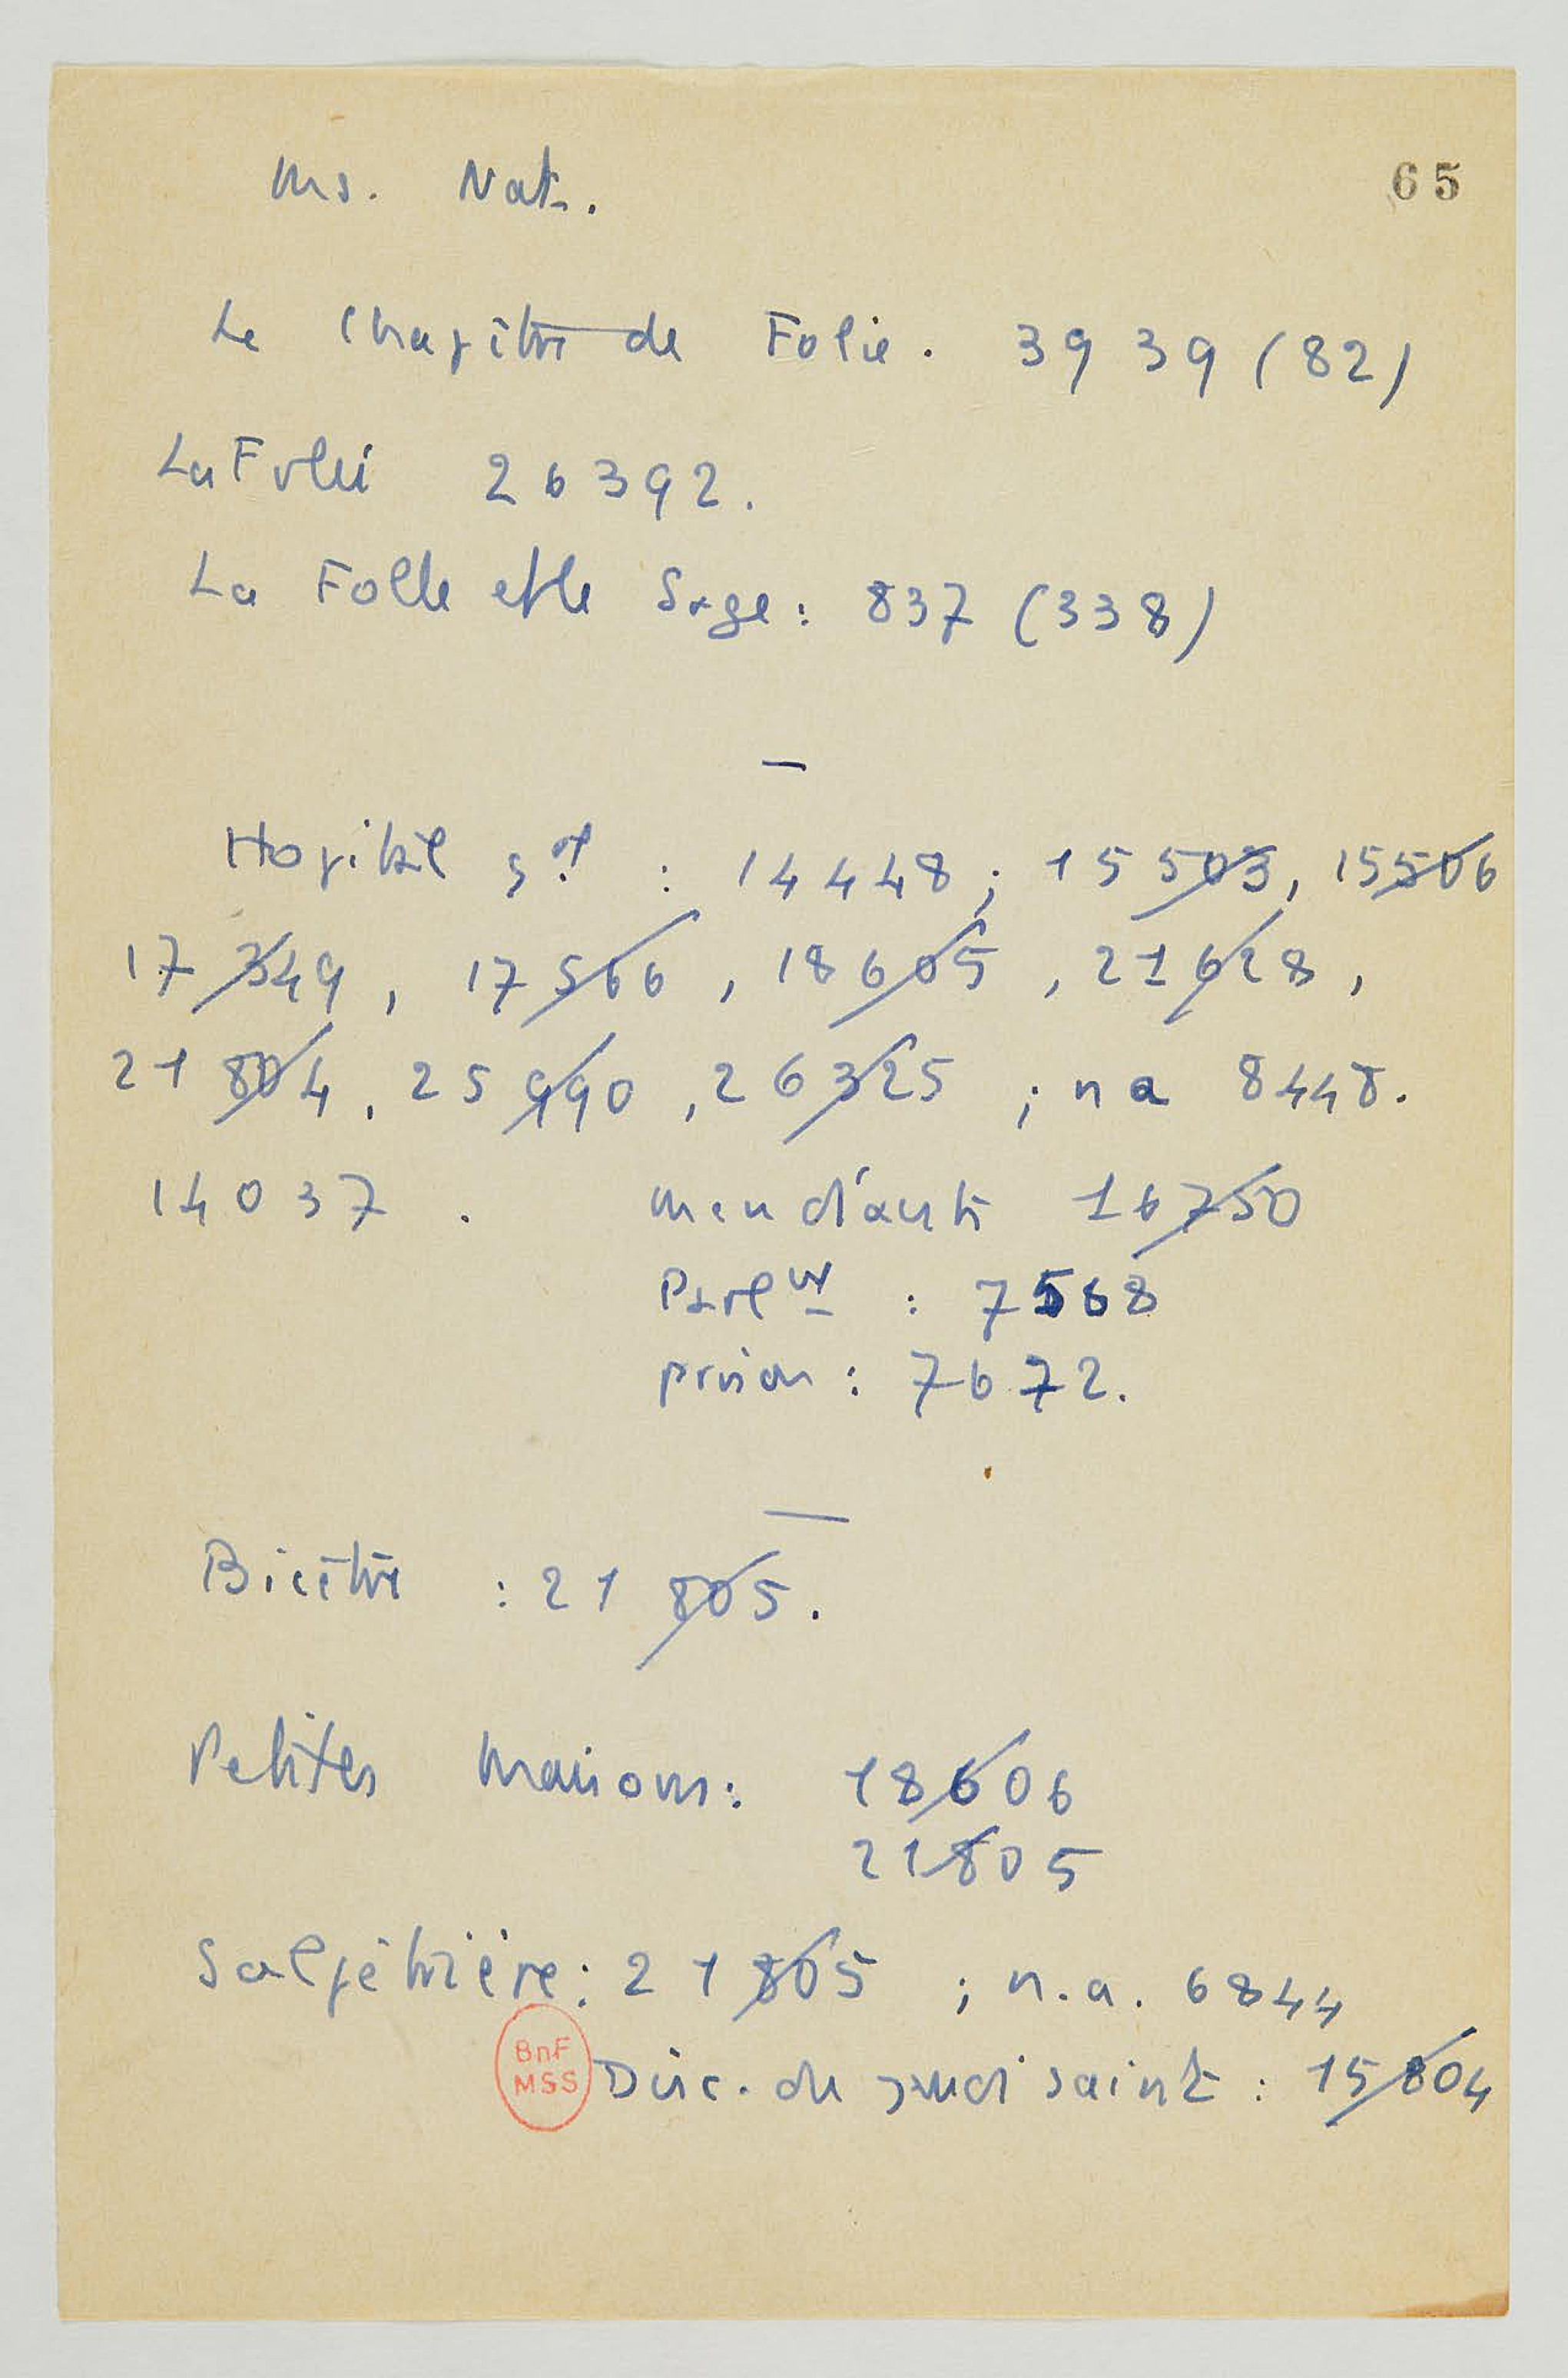 Ms. Nat.
65
Le Chapitre de Folie. 3939 (82)
La Folie 26392.
La Folle et le Sage: 837 (338)
—
Hopital gal : 14448; 15503, 15506
17349, 17566, 18605, 21628,
21804, 25990, 26325 ; na 8448.
14037.
mendiants 16750
Parlnt : 7568
prison : 7672.
—
Bicêtre : 21805.
Petites Maisons: 18606
21805
Salpêtrière: 21805 ; n.a. 6844
BnF
MSS
Disc. du jeudi saint : 15804